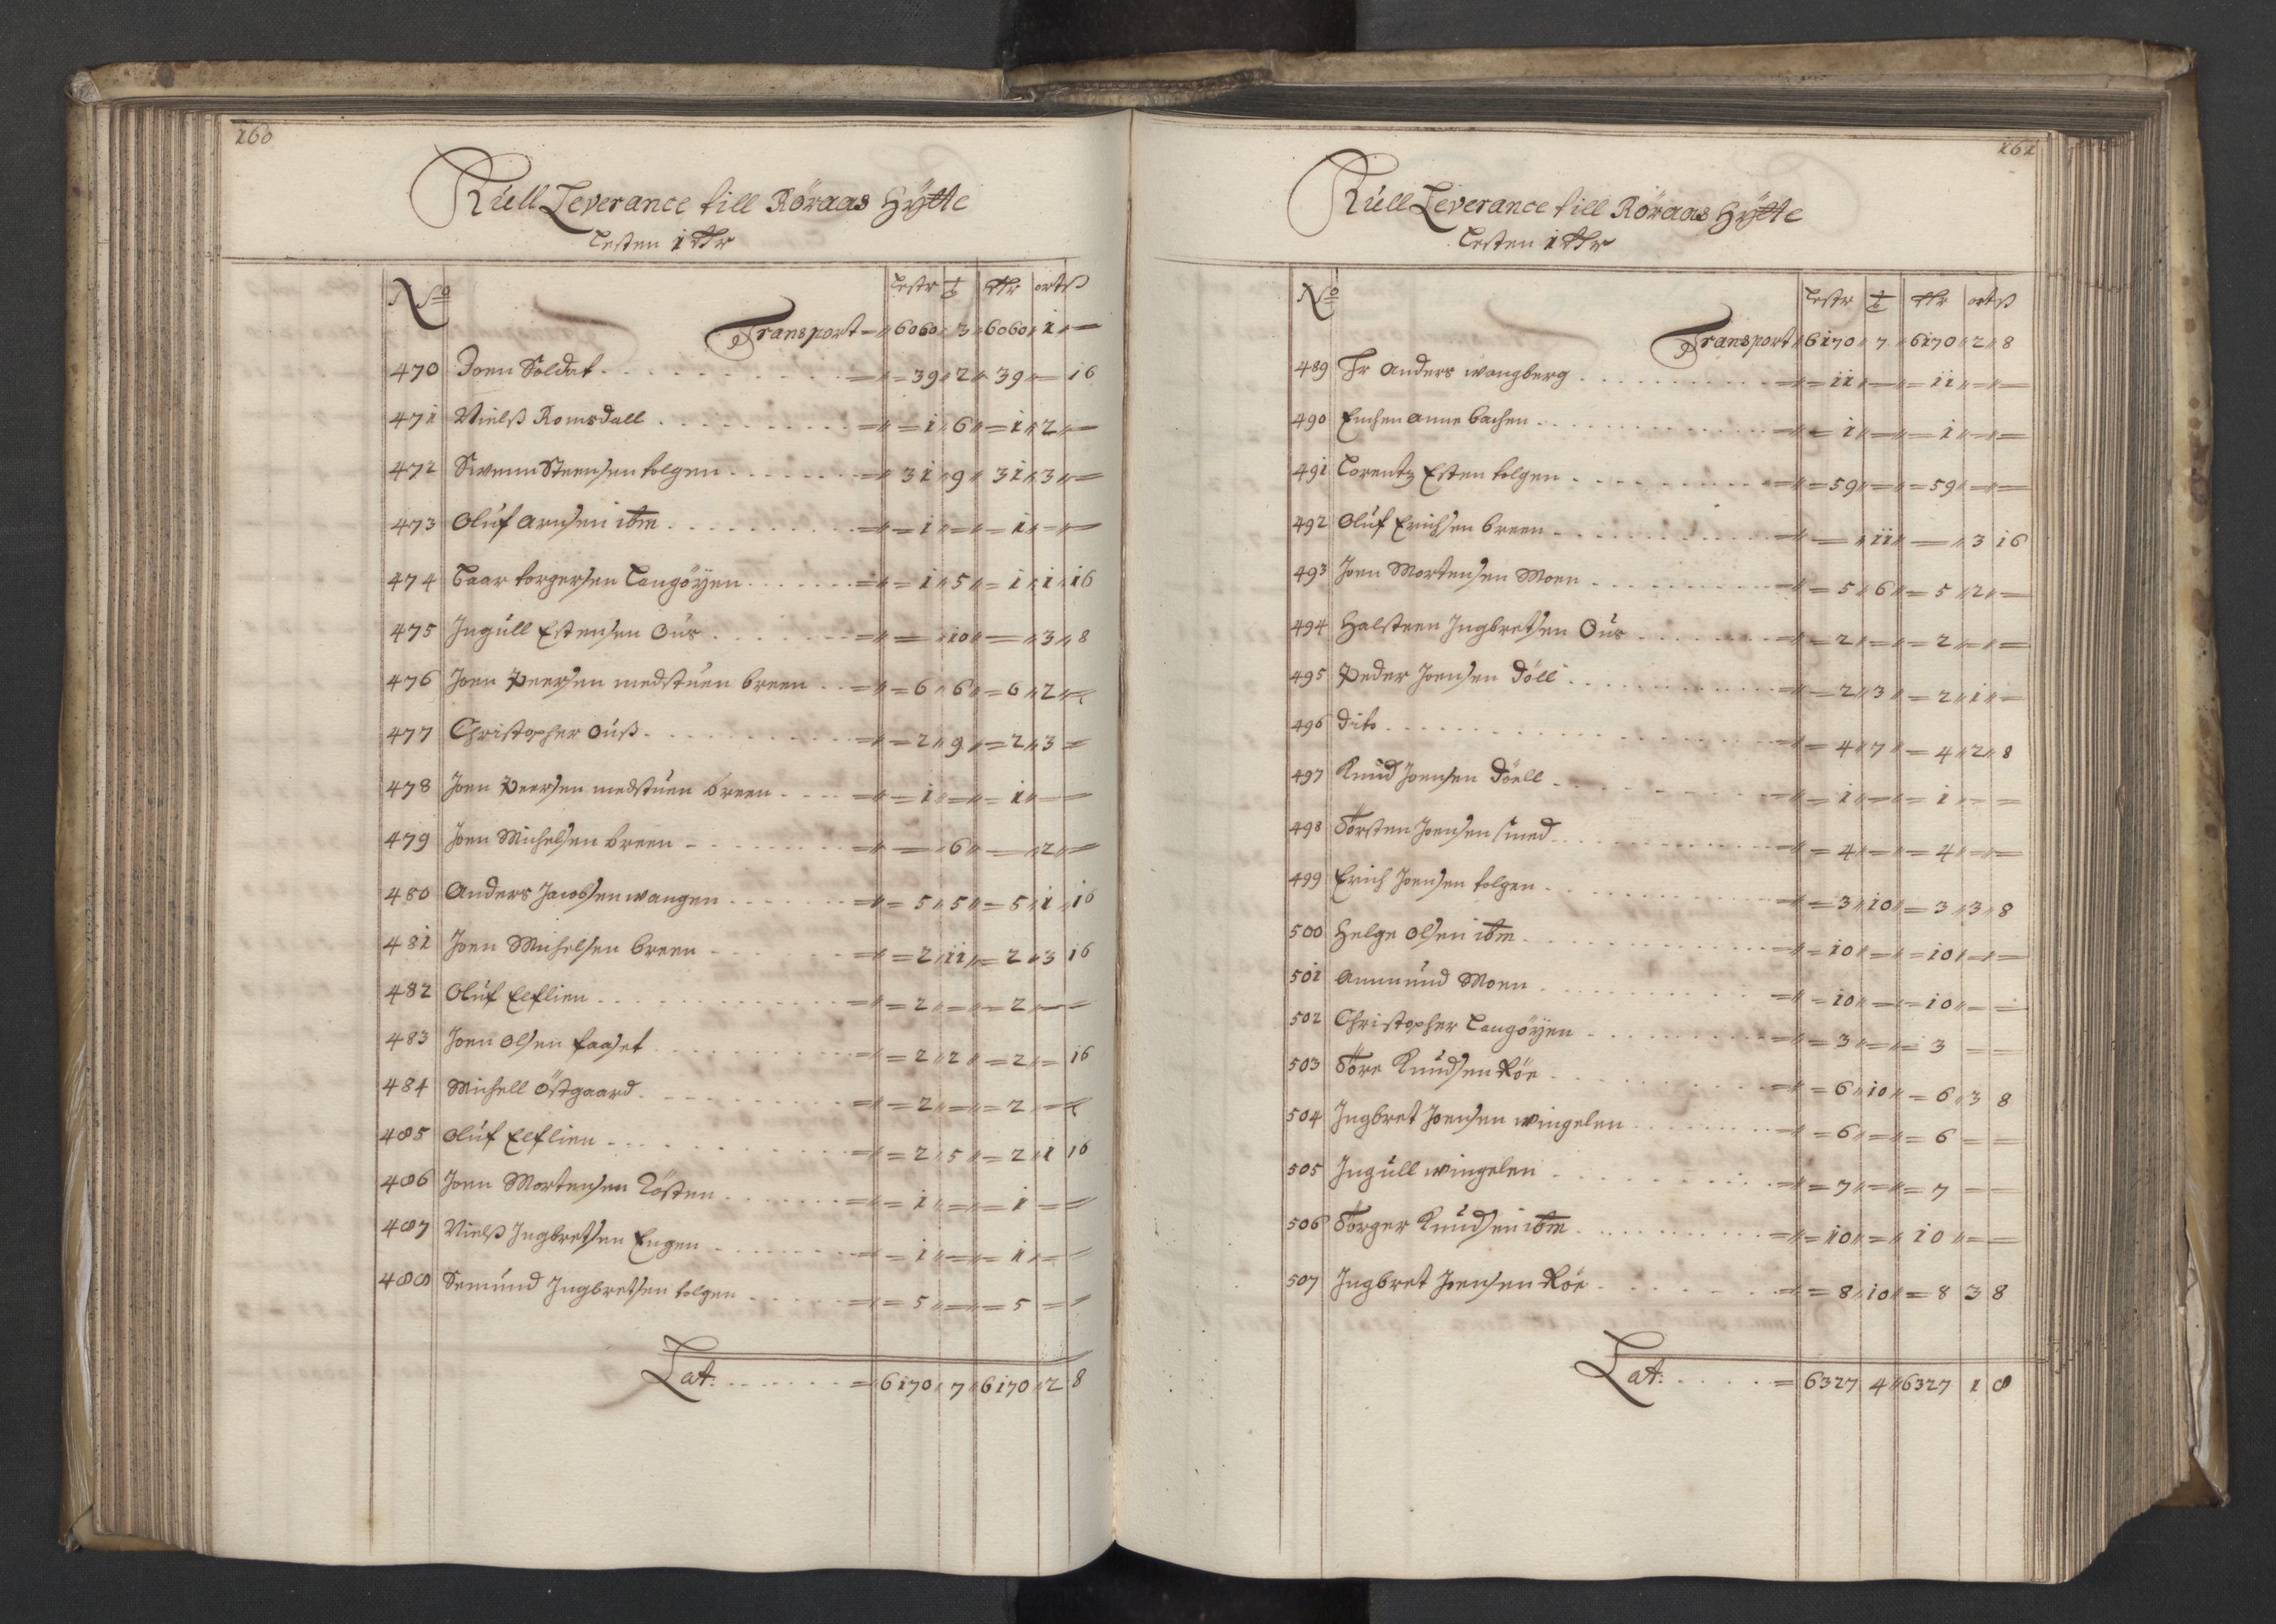 160
Kull Leverance till Röraas Hÿtte
Lesten 1 Rdr
No Lestr t Rdr ort ß
Transport 6060 3 6060 1 —
470 Joen Soldat 39 2 39 — 16
471 Nielß Romsdall 1 6 1 2 —
472 Swenn Steensen tolgen 31 9 31 3 —
473 Oluf Arnsen ibm 1 — 1 — —
474 Baar torgersen Langöÿen 1 5 1 1 16
475 Ingull Estensen Ous — 10 — 3 8
476 Joen Peersen medstuen breen 6 6 6 2 —
477 Christopher Ouß 2 9 2 3 —
478 Joen Peersen medstuen breen 1 — 1 — —
479 Joen Michelsen breen — 6 — 2 —
480 Anders Jacobsen wangen 5 5 5 1 16
481 Joen Michelsen breen 2 11 2 3 16
482 Oluf Elflien 2 — 2 — —
483 Joen Olsen faaset 2 2 2 — 16
484 Michell Östgaard 2 — 2 — —
485 Oluf Elflien 2 5 2 1 16
486 Joen Mortensen Tösten 1 — 1 — —
487 Nielß Ingbretsen Engen 1 — 1 — —
488 Semund Ingbretsen tolgen 5 — 5 — —
Lat: 6170 7 6170 2 8
161
Kull Leverance till Röraas Hÿtte
Lesten 1 Rdr
No Lestr t Rdr ort ß
Transport 6170 7 6170 2 8
489 Hr Anders wangberg 11 — 11 — —
490 Enchen Anne bachen 1 — 1 — —
491 Lorentz Esten tolgen 59 — 59 — —
492 Oluf Erichsen breen — 11 — 3 16
493 Joen Mortensen Moen 5 6 5 2 —
494 Halsteen Ingbretsen Ous 2 — 2 — —
495 Peder Joensen döll 2 3 2 1 —
496 dito 4 7 4 2 8
497 Knud Joensen döell 1 — 1 — —
498 Torsten Joensen smed 4 — 4 — —
499 Erich Joensen tolgen 3 10 3 3 8
500 Helge Olsen ibm 10 — 10 — —
501 Ammund Moen 10 — 10 — —
502 Christopher Langöÿen 3 — 3 — —
503 Töre Knudsen Röe 6 10 6 3 8
504 Ingbret Joensen wingelen 6 — 6 — —
505 Ingull wingelen 7 — 7 — —
506 Torger Knudsen ibm 10 — 10 — —
507 Ingbret Joensen Röe 8 10 8 3 8
Lat: 6327 4 6327 1 8